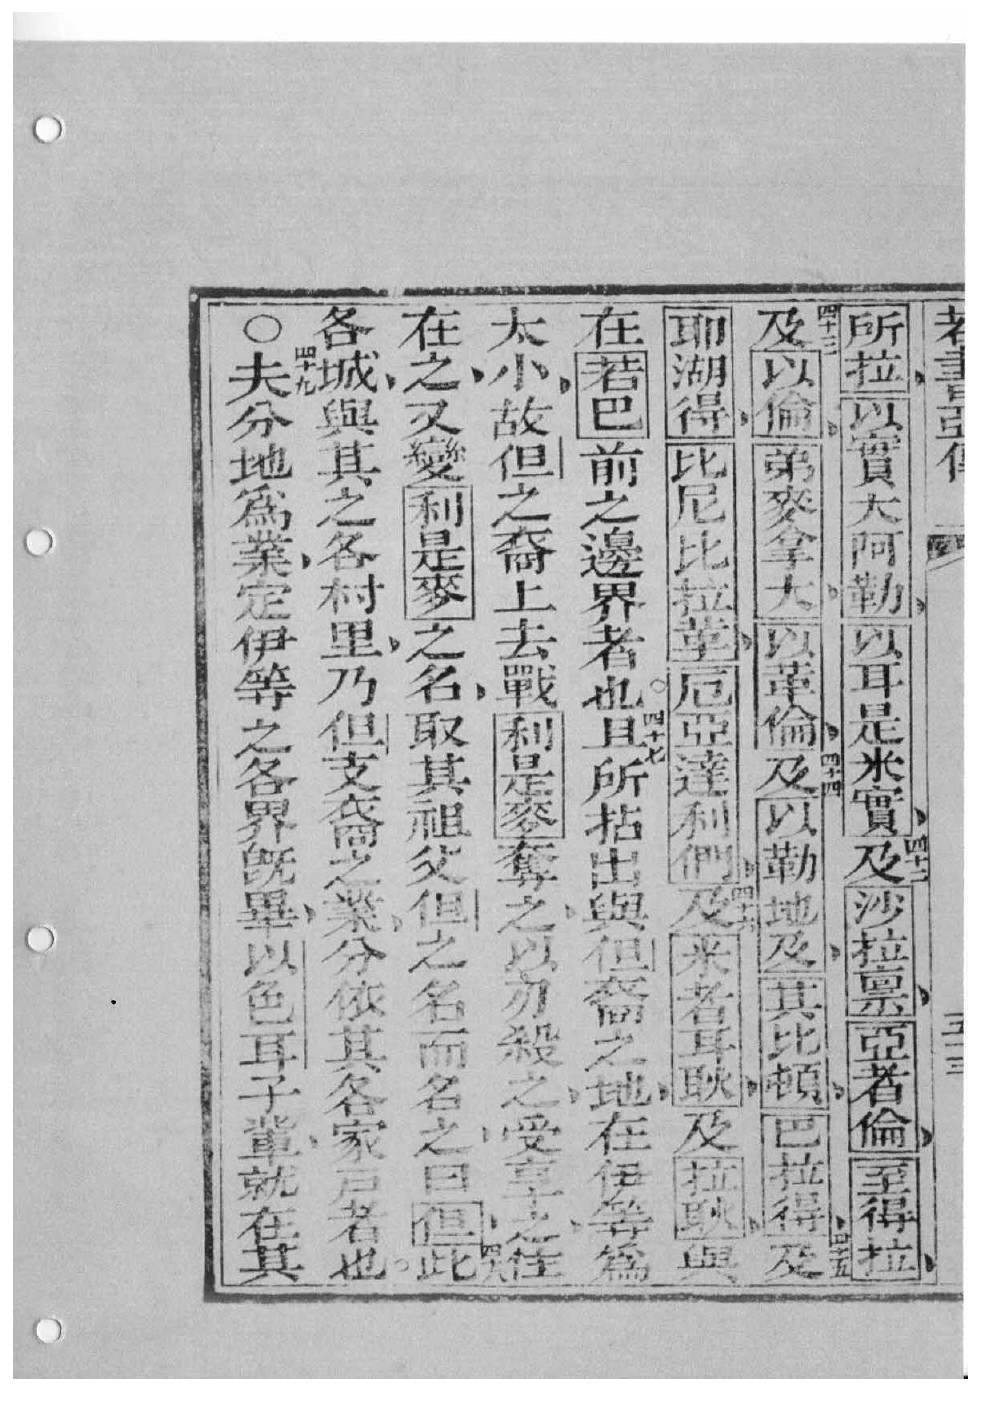 若書亞傳 五十三
所拉以實大阿勒以耳是米實四十二及沙拉票亞者倫至得拉
四十三及以倫弟麥拿大以革倫四十四及以勒地及其比頓巴拉得四十五及
耶湖得比尼比拉革厄亞達利們四十六及米者耳耿及拉耿與
在若巴前之邊界者也。四十七且所拈出與但裔之地在伊等為
太小故但之裔上去戰利是麥奪之以刃殺之受享之住
在之又變利是麥之名取其祖父但之名而名之曰但四十八此
各城與其之各村里乃但支裔之業分依其各家戶者也。
○四十九夫分地為業定伊等之各界旣畢以色耳子輩就在其